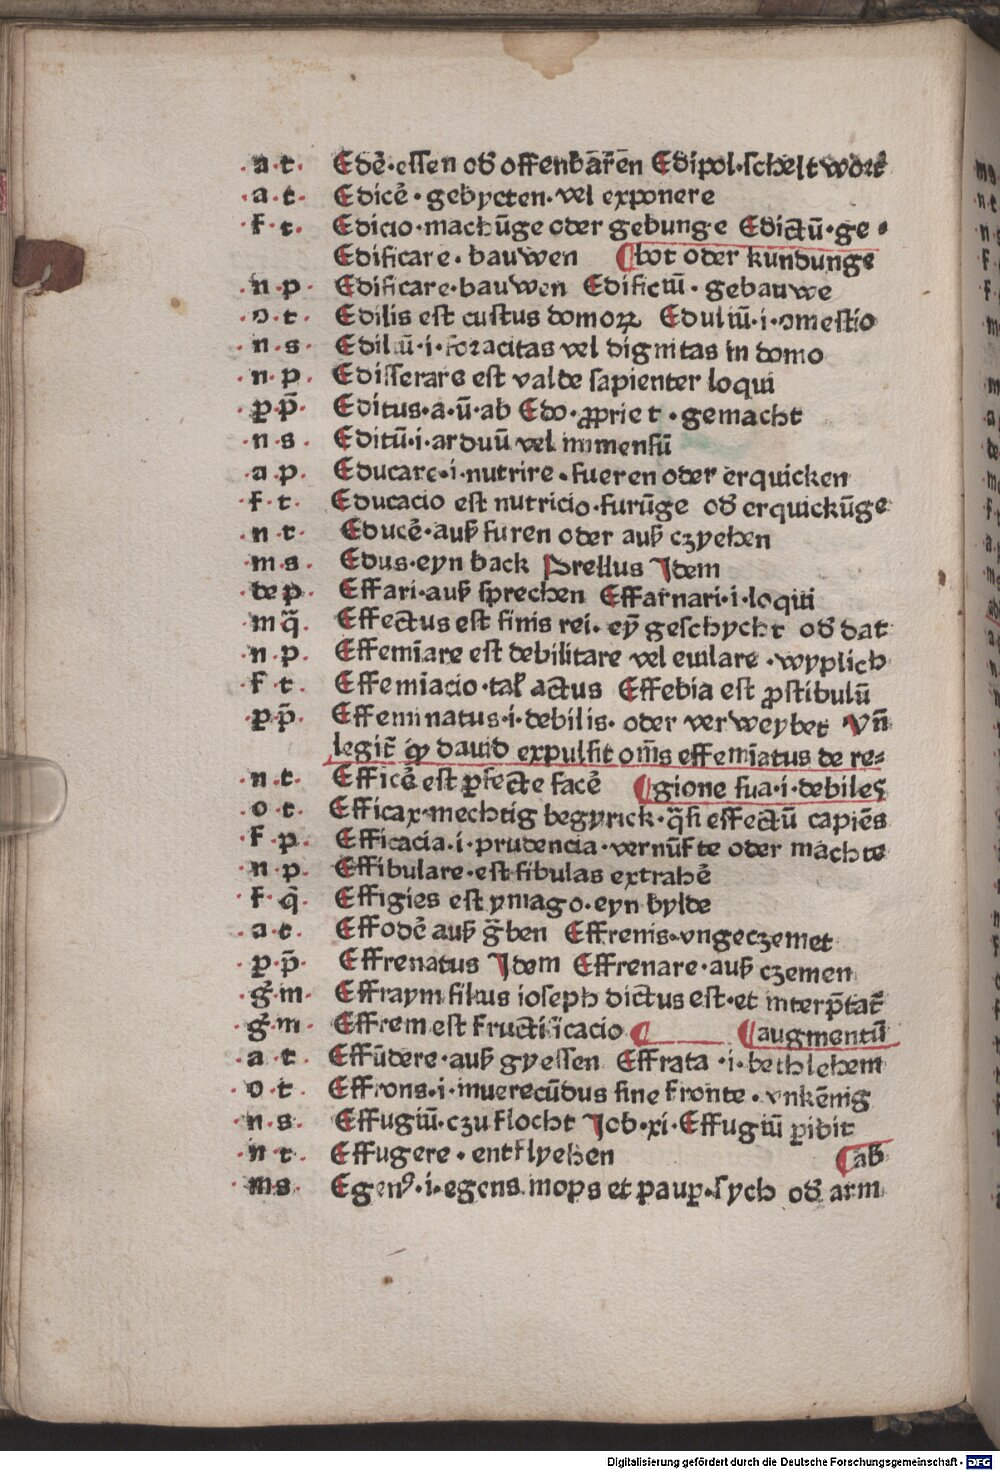 ·a·t· Edē·essen od̄ offenbārēn Edipol·schelt wort
·a·t· Edicē·gebycten·vel exponere
·f·t· Edicio·machūge oder gebunge Edictū·ge·
Edificare·bauwen ¶bot oder kundunge
·n·p· Edificare·bauwen Edificiū·gebauwe
·o·t· Edilis est custus domoꝝ Eduliū·i·omestio
·n·s· Ediliū·i·foracitas vel dignitas in domo
·n·p· Edisserare est valde sapienter loqui
·p·p̄· Editus·a·ū·ab Edo·ꝓpriet·gemacht
·n·s· Editū·i·arduū vel immensū
·a·p· Educare·i·nutrire·fueren oder erquicken
·f·t· Educacio est nutricio·furūge od̄ erquickūge
·n·t· Educē·auß furen oder auß czyehen
·m·s· Edus·eyn back Brellus Idem
·de p· Effari·auß sprechen Effarnari·i·loqui
·m q̄· Effectus est finis rei·eȳ geschycht od̄ dat
·n·p· Effemīare est debilitare vel euilare·wyplich
·f·t· Effemīacio·tal̄ actus Effebia est ꝓstibulū
·p·p̄· Effeminatus·i·debilis·oder verweybet Vn̄
legit̄ ꝙ dauid expulsit om̄s effemīatus de re-
·n·t· Efficē est ꝑfecte facē ¶gione sua·i·debiles
·o·t· Efficax·mechtig begyrick·q̄si effectū capiēs
·f·p· Efficacia·i·prudencia·vernūfte oder machte
·n·p· Effibulare·est fibulas extrahē
·f·q̄· Effigies est ymago·eyn bylde
·a·t· Effodē auß g̃ben Effrenis·vngeczemet
·p·p̄· Effrenatus Idem Effrenare·auß czemen
·g̃·m· Effraym filius ioseph dictus est·et interp̄tat̄
·g̃·m· Effrem est fructificacio ¶ ¶augmentū
·a·t· Effūdere·auß gyessen Effrata·i·bethlehem
·o·t· Effrons·i·inuerecūdus sine fronte·vnkēnig
·n·s· Effugiū·czu flocht Job·xi·Effugiū ꝑibit
·n·t· Effugere·entflyehen ¶ab̄
·m s· Egenꝰ·i·egens inops et pauꝑ·sych od̄ arm
Digitalisierung gefördert durch die Deutsche Forschungsgemeinschaft - DFG